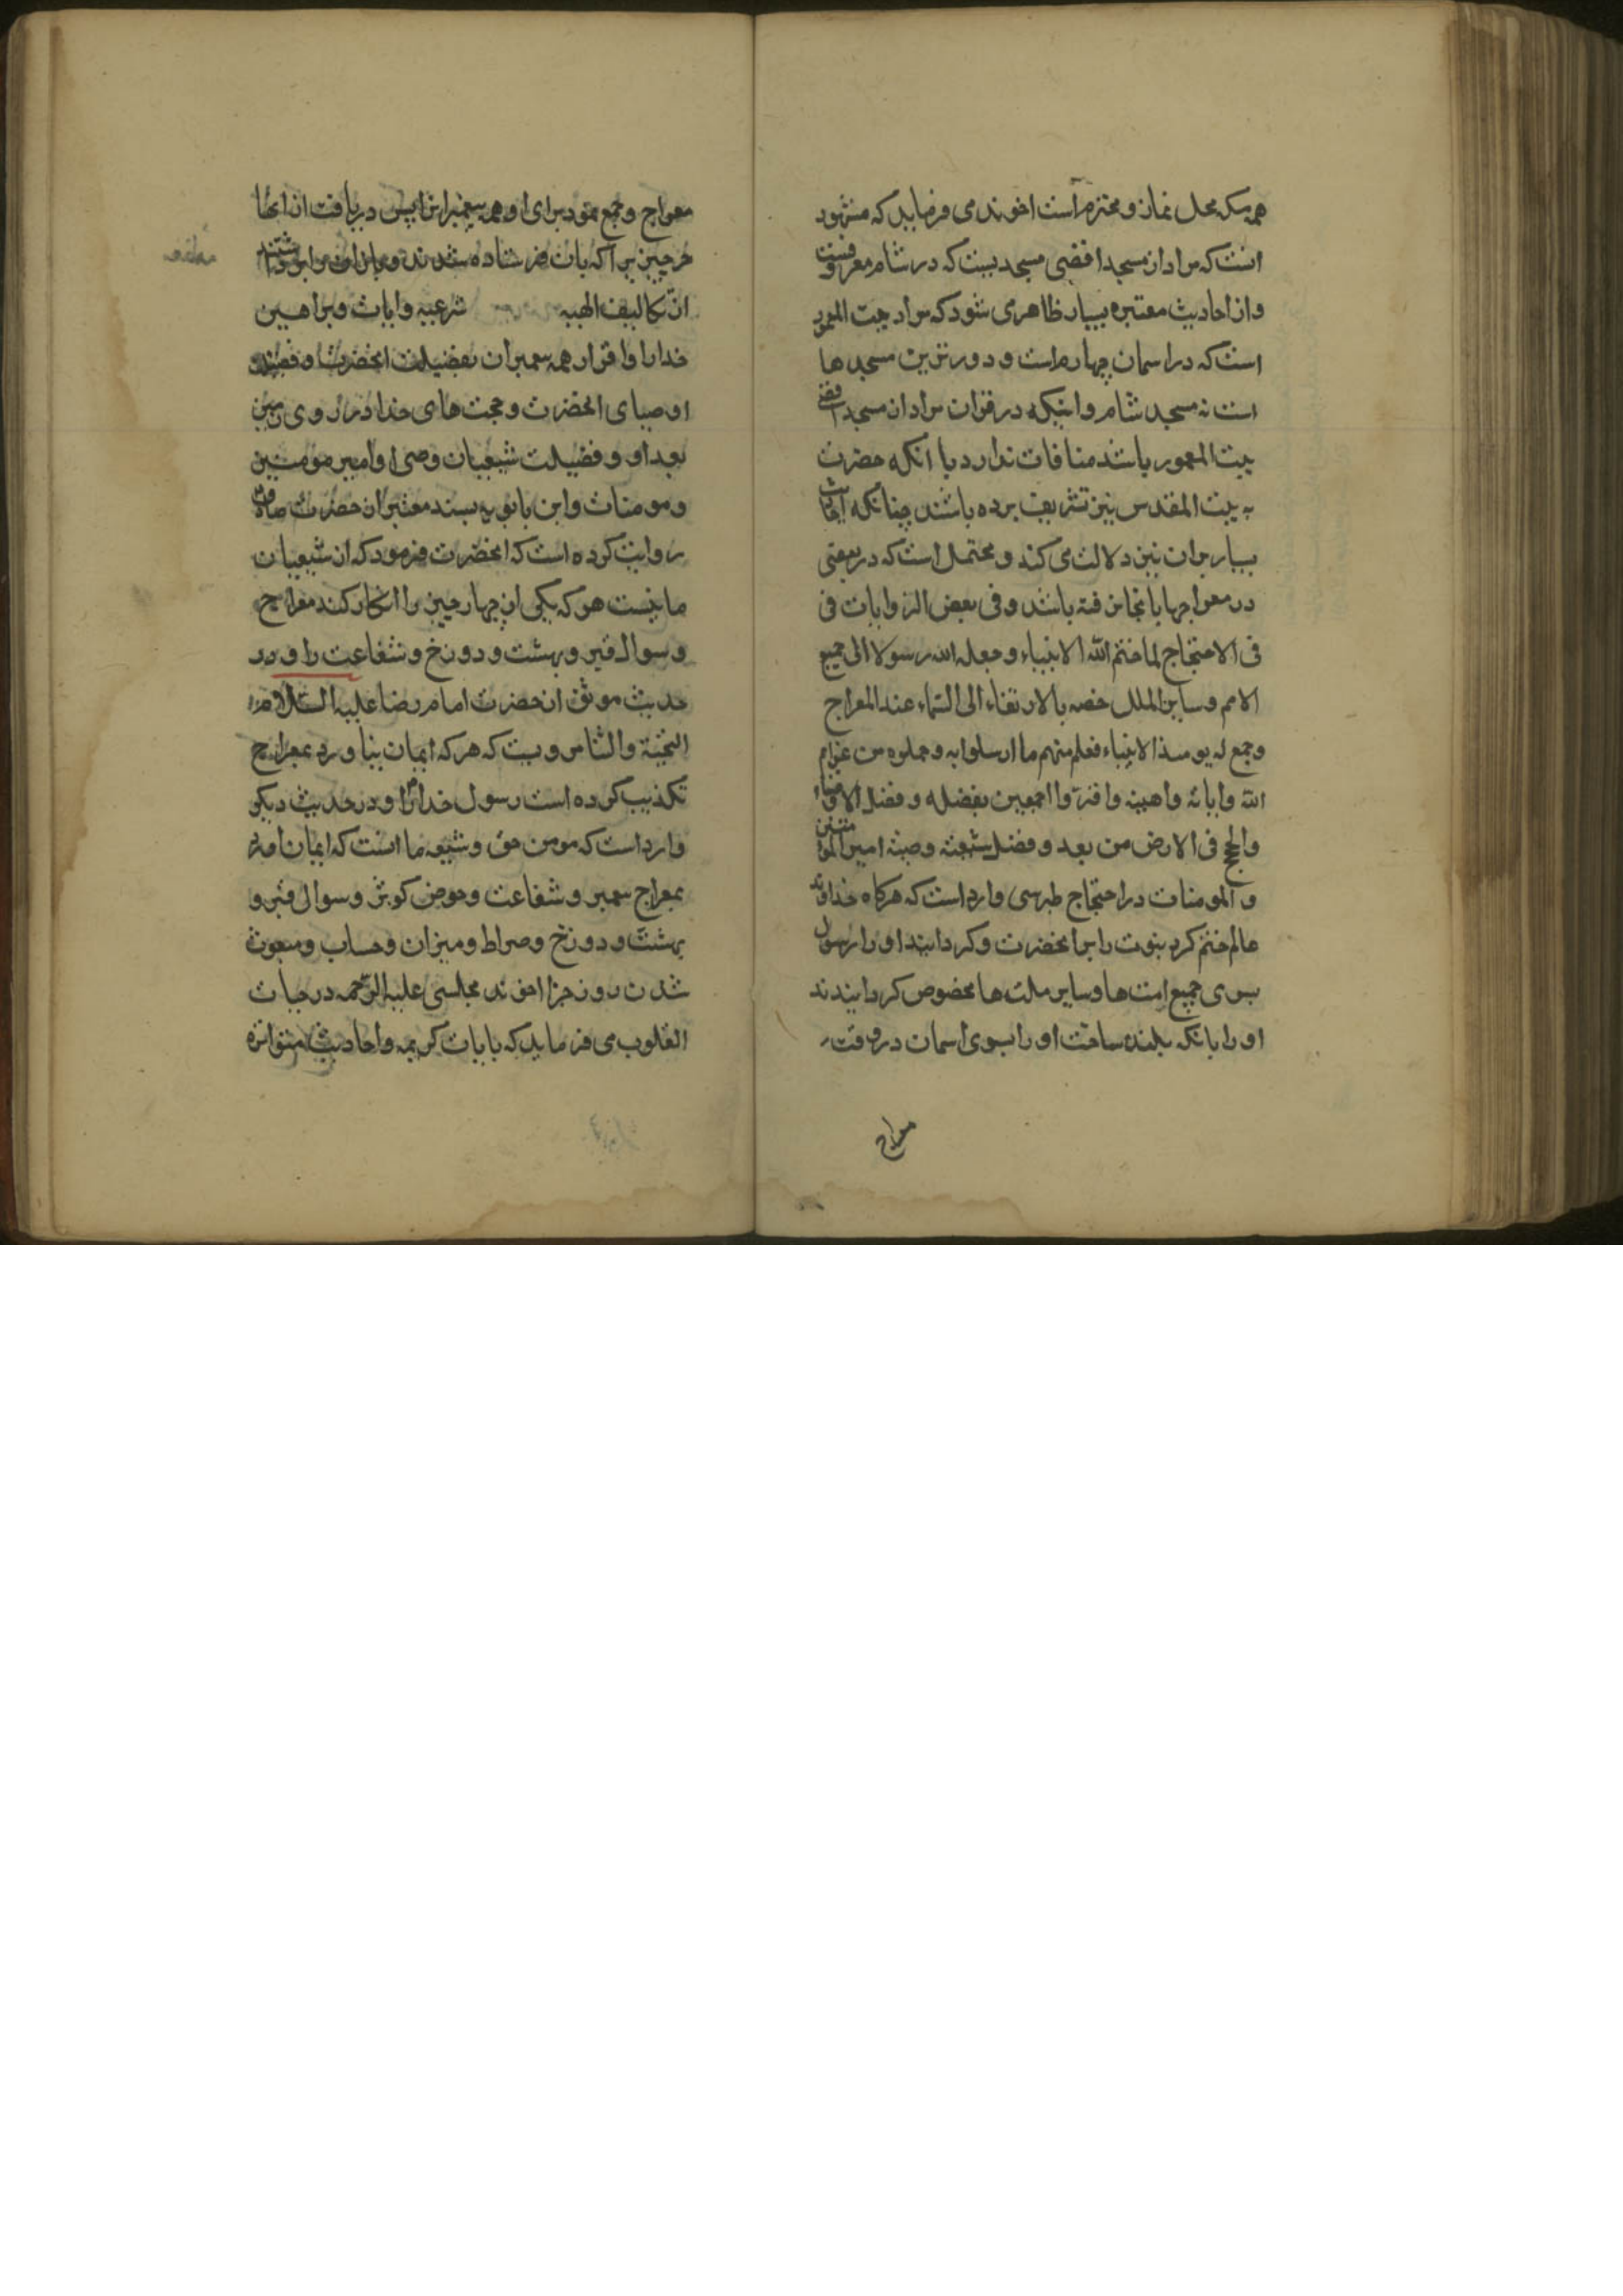 همه مکه محل نماز و محترم است اخوند می فرماید که مشهور
انست که مراد از مسجد اقصی مسجدیست که در شام معروفست
و از احادیث معتبره بسیار ظاهر می شود که مراد بیت المعمور
است که در اسمان چهارم است و دورترین مسجدها
است نه مسجد شام و اینکه در قران مراد از مسجد اقصی
بیت المعمور باشد منافات ندارد با انکه حضرت
به بیت المقدس نیز تشریف برده باشند چنانکه احادیث
بسیار بران نیز دلالت می کند و محتمل است که در بعضی
در معراجها بانجا رفته باشد و فی بعض الروایات فی
فی الاحتجاج لما ختم الله الانبیاء و جعله الله رسولا الی جمیع
الامم و سایر الملل خصه بالارتقاء الی السماء عند المعراج
و جمع له یومئذ الانبیاء فعلم منهم ما ارسلوا به و حملوه من عزایم
الله و ایاته و اهینه و اقروا اجمعین بفضله و فضل الاوصیاء
و الحجج فی الارض من بعد و فضل شیعته وصیه امیر المومنین
و المومنات در احتجاج طبرسی وارد است که هرکاه خداوند
عالم ختم کرد نبوت را بر انحضرت و کردانید او را رسول
بسوی جمیع امت ها و سایر ملت ها مخصوص کردانیدند
او را بانکه بلند ساخت او را بسوی اسمان در وقت
معراج
معراج و جمع نمود برای او همه پیغمبران را پس دریافت از انها
هر چیزیرا که بان فرستاده شدند و بار ان را برداشتند
از تکالیف الهیه شرعیه و ایات و براهین
خدا را و اقرار همه پیغمبران بفضیلت انحضرت و فضیلت
اوصیای انحضرت و حجت های خدا در روی زمین
بعد او و فضیلت شیعیان وصی او امیر مومنین
و مومنات و ابن بابویه بسند معتبر از حضرت صادق
روایت کرده است که انحضرت فرمود که از شیعیان
ما نیست هر که یکی از چهار چیز را انکار کند معراج
و سوال قبر و بهشت و دوزخ و شفاعت را و در
حدیث موثق از حضرت امام رضا علیه السلام
التحیة و الثنا مرویست که هر که ایمان نیاورد بمعراج
تکذیب کرده است رسول خدا را و در حدیث دیکر
وارد است که مومن حق و شیعه ما انست که ایمان اورد
بمعراج پیغمبر و شفاعت و حوض کوثر و سوال قبر و
بهشت و دوزخ و صراط و میزان و حساب و مبعوث
شدن روز جزا اخوند مجلسی علیه الرحمه در حیات
القلوب می فرماید که بایات کریمه و احادیث متواتره